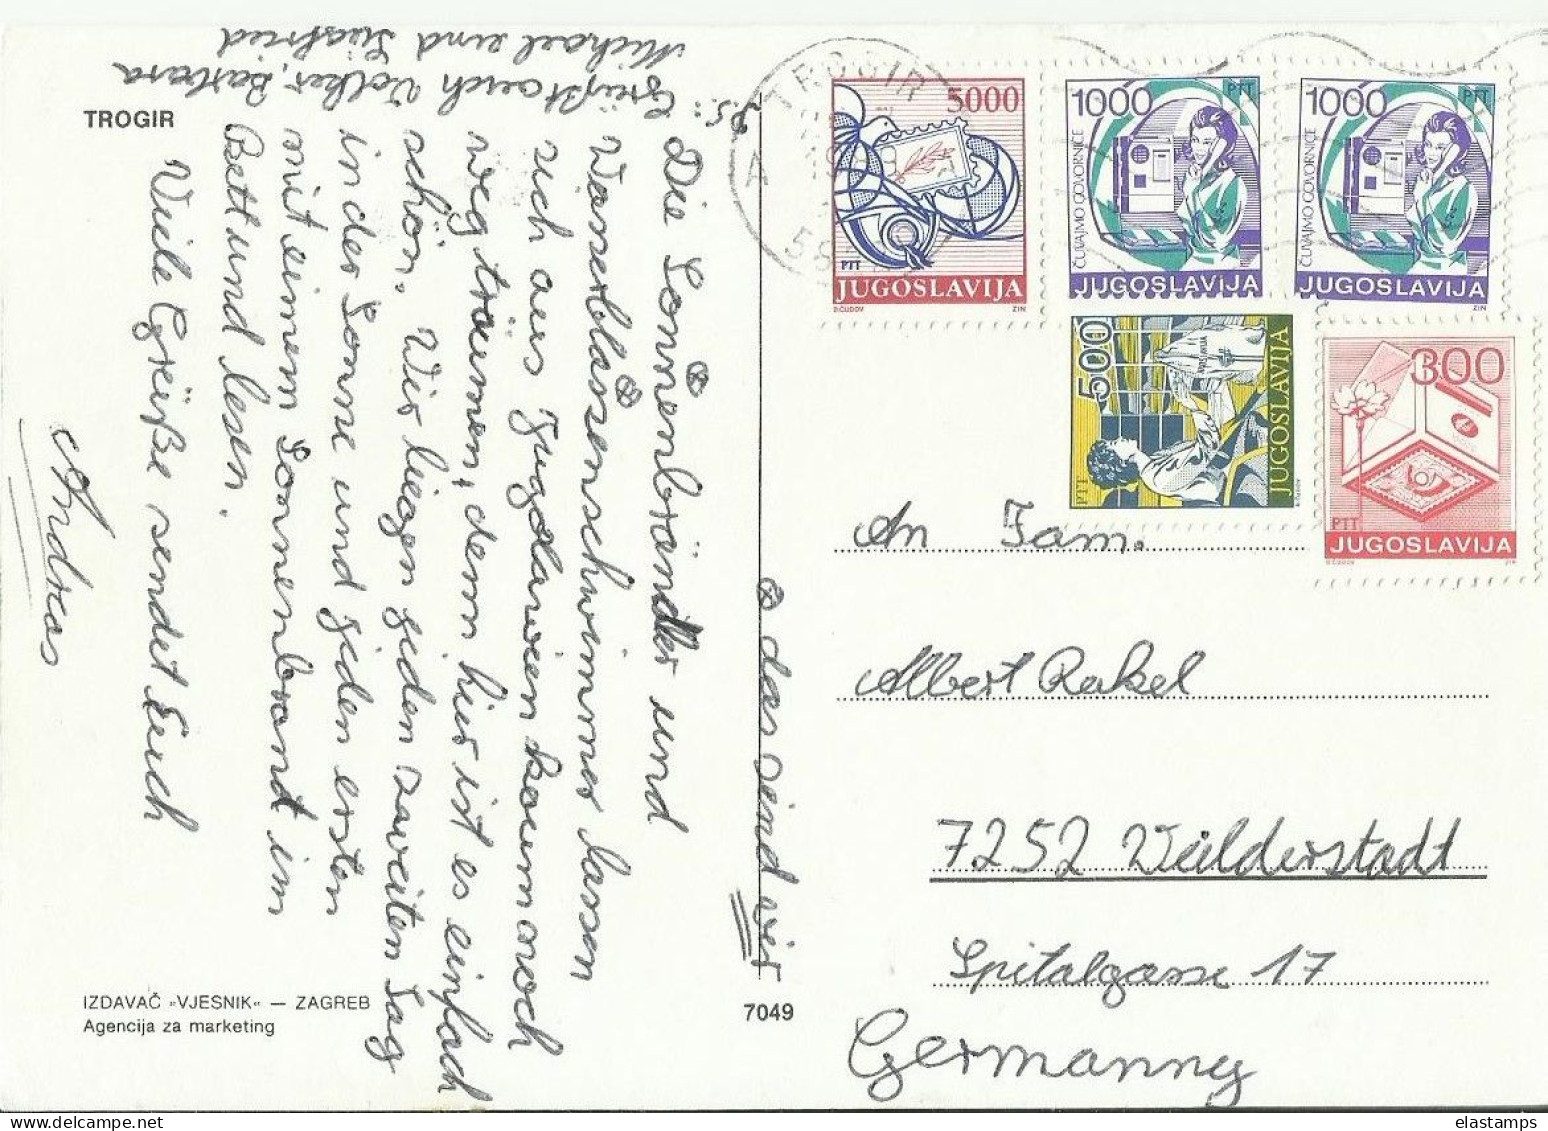 TROGIR
Die Sonnenbränder und
Wasserblasenschwimmer lassen
sich aus Jugoslawien kaum noch
wegträumen, denn hier ist es einfach
schön. Wir liegen jeden zweiten Tag
in der Sonne und jeden ersten
mit einem Sonnenbrand im
Bett und lesen.
Viele Grüße sendet Euch
Andreas
P.S.: Grüßt auch Volker, Barbara
Michael und Siegfried
⊗ das sind wir
IZDAVAČ »VJESNIK« — ZAGREB
Agencija za marketing
7049
TROGIR
A
5000
PTT
JUGOSLAVIJA
D.ČUDOV ZIN
1000
PTT
ČUVAJMO GOVORNICE
JUGOSLAVIJA
ZIN
1000
PTT
ČUVAJMO GOVORNICE
JUGOSLAVIJA
ZIN
500
PTT
JUGOSLAVIJA
800
PTT
JUGOSLAVIJA
D.ČUDOV ZIN
An Fam.
Albert Rakel
7252 Weilderstadt
Spitalgasse 17
Germanny
elastamps